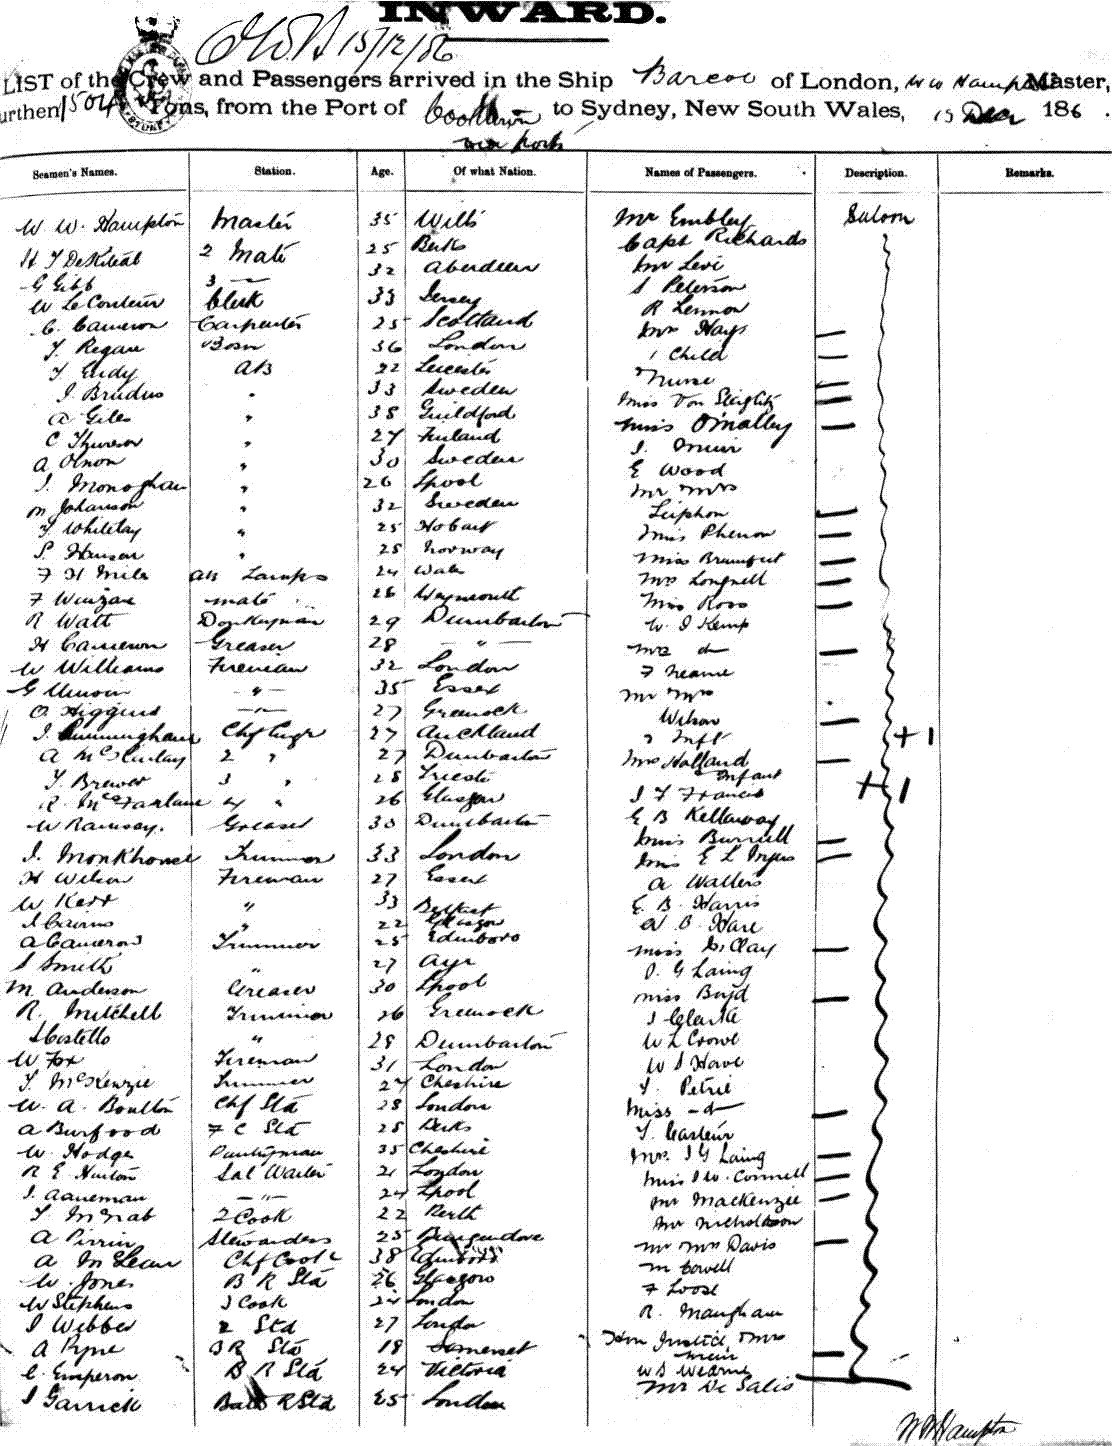 INWARD.
15/12/86
LIST of the Crew and Passengers arrived in the Ship Barcoo of London, W W Hampton Master,
Burthen 1504 Tons, from the Port of Cooktown to Sydney, New South Wales, 15 Decr 1886.
via Ports
Seamen's Names. Station. Age. Of what Nation. Names of Passengers. Description. Remarks.
W. W. Hampton Master 35 Wilts Mr Embley Saloon
2 Mate 25 Berks Capt Richards
G Gibb 3 — 32 Aberdeen Mr Levi
W Le Couteur Clerk 33 Jersey S Peterson
C. Cameron Carpenter 25 Scotland R Lennon
T. Regan Bosn 36 London Mrs Hays —
T Eudy AB 22 Leicester 1 Child —
J. Brudus " 33 Sweden Nurse —
A Giles " 38 Guildford Miss Von Stieglitz —
C " 27 Finland Miss O'Malley —
A Olnon " 30 Sweden J. Muir
J. Monoghan " 26 Lpool E Wood
M Johanson " 32 Sweden Mr Mrs
T Whiteley " 25 Hobart —
P. Hansen " 25 Norway Miss —
F H Mile AB Lamps 24 Wales Miss —
F mate 26 Weymouth Mrs Longnell —
R Watt Donkeyman 29 Dumbarton Miss Ross —
H Cameron Greaser 28 — " — W. J Kemp
W Williams Fireman 32 London Mrs do —
G Unwin — " — 35 Essex F Neame
O. Higgins — " — 27 Greenock Mr Mrs
J. Cunningham Chf Engr 27 Auckland Wilson —
A McKinlay 2 " 27 Dumbarton & Inft +1
T. Brewer 3 " 28 Trieste Mrs Holland —
R. McFarlane 4 " 26 Glasgow & Infant +1
W Ramsay. Greaser 30 Dumbarton J T Francis
J. Monkhouse Trimmer 33 London E B Kellaway
H Wilson Fireman 27 Essex Miss Burrell —
W Kerr " 33 Belfast Miss E L Inges —
J Cairns " 22 Glasgow A Walters
A Cameron Trimmer 25 Edinboro E. B. Harris
S Smith " 27 Ayr B Hare
M. Anderson Greaser 30 Lpool Miss Clay —
R. Mitchell Trimmer 26 Greenock D. G Laing
J Costello " 28 Dumbarton Miss Boyd —
W Fox Fireman 31 London J Clarke
T. McKenzie Trimmer 24 Cheshire W L Crowe
W. A. Boulton Chf Std 28 London W S Howe
A Burfood F C Std 28 Berks T. Petrie
W. Hodge Pantryman 35 Cheshire Miss — do —
R E Huxton Sal Waiter 21 London T.
J. Aaneman — " — 24 Lpool Mrs. J G Laing —
T McNab 2 Cook 22 Perth Miss J W. Connell —
A Pirrin Stewardess 25 Mr Mackenzie —
A McLean Chf Cook 38 Edinboro Mr Nicholson
W. Jones B R Std 26 Glasgow Mr Mrs Davis —
W Stephens 3 Cook 24 London M Cowell
J Webber 2 Std 27 London F Loose
A Pyne B R Std 18 Somerset R. Maugham
C. Emperon B R Std 24 Victoria Hon Justice, Mrs
J Garrick R Std 25 London Muir —
W S Wearne
Mr De Salis
W W Hampton